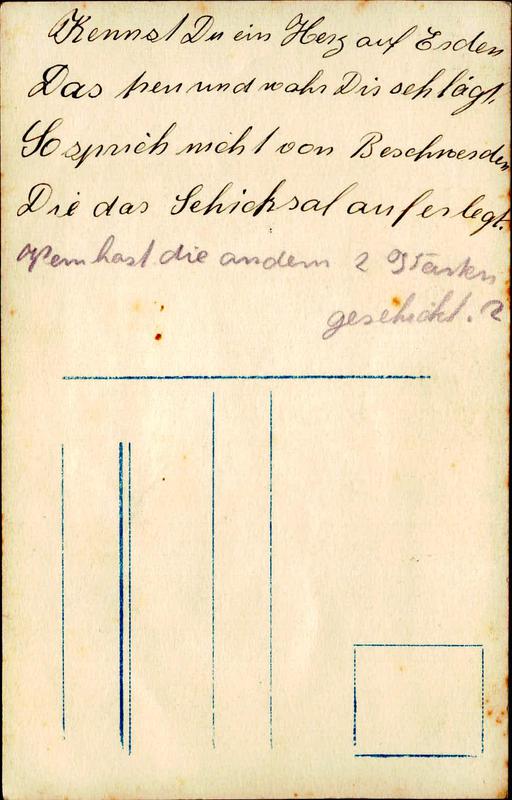 Kennst Du ein Herz auf Erden
Das treu und wahr Dir schlägt.
So sprich nicht von Beschwerden
Die das Schicksal auferlegt.
Wem hast die andern 2 Karten
geschickt.?